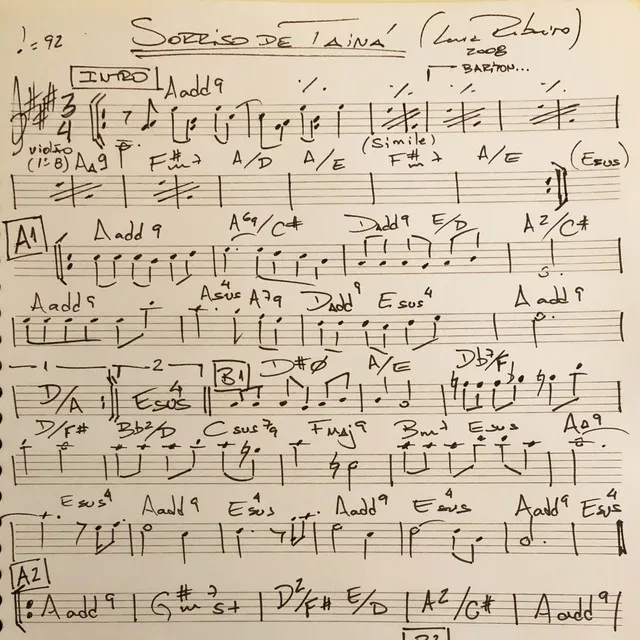 ♩=92 SORRISO DE TAINÁ (Ribeiro)
2008
INTRO Aadd9 ٪ BARITON...
3
4
violão (Simile)
(1ª 8) F#m7 A/D A/E F#m7 A/E (Esus)
A1 Aadd9 A69/C# Dadd9 E/D A2/C#
Aadd9 Asus4 A79 Dadd9 Esus4 Aadd9
1 2 B1 D#ø A/E Db7/F
D/A Esus4
D/F# Bb2/D Csus79 Fmaj9 Bm7 Esus
Esus4 Aadd9 Esus4 Aadd9 Esus4 Aadd9 Esus4
A2
Aadd9 G#m7 5+ D2/F# E/D A2/C# Aadd9